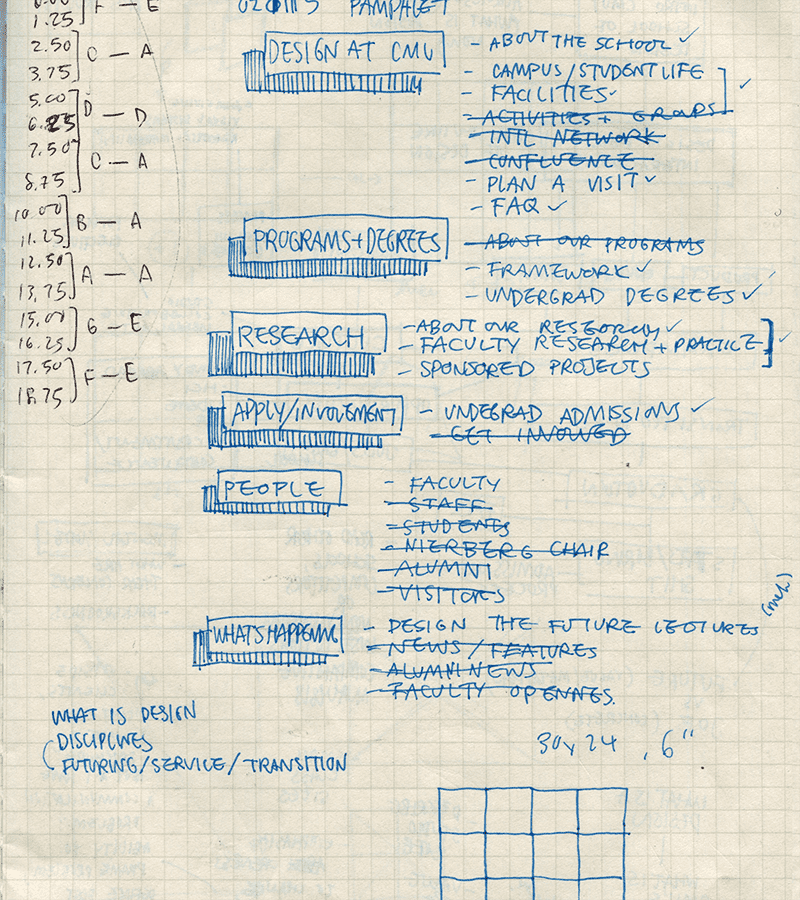 1.25 F — E
2.50
3.75 C — A
5.00
6.25 D — D
7.50
8.75 C — A
10.00
11.25 B — A
12.50
13.75 A — A
15.00
16.25 G — E
17.50
18.75 F — E
PAMPHLET
DESIGN AT CMU
- ABOUT THE SCHOOL ✓
- CAMPUS/STUDENT LIFE
- FACILITIES ✓
- ACTIVITIES + GROUPS
- INTL NETWORK
- CONFLUENCE
- PLAN A VISIT ✓
- FAQ ✓
PROGRAMS+DEGREES
- ABOUT OUR PROGRAMS
- FRAMEWORK ✓
- UNDERGRAD DEGREES ✓
RESEARCH
- ABOUT OUR RESEARCH ✓
- FACULTY RESEARCH + PRACTICE
- SPONSORED PROJECTS
APPLY/INVOVEMENT
- UNDEGRAD ADMISSIONS ✓
- GET INVOVED
PEOPLE
- FACULTY
- STAFF
- STUDENTS
- NIERBERG CHAIR
- ALUMNI
- VISITORS
WHATS HAPPENING
- DESIGN THE FUTURE LECTURES
- NEWS / FEATURES
- ALUMNI NEWS
- FACULTY OPENNES
(meh)
WHAT IS DESIGN
DISCIPLINES
FUTURING/SERVICE/TRANSITION
30 x 24 , 6"